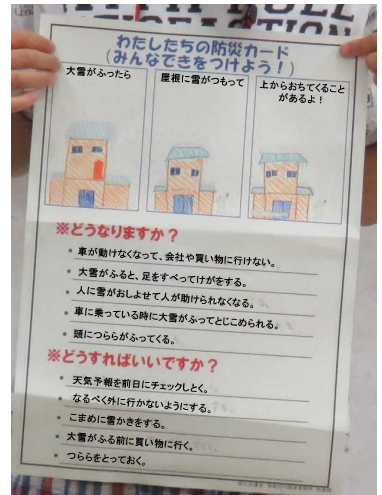 わたしたちの防災カード
(みんなできをつけよう！)
大雪がふったら
屋根に雪がつもって
上からおちてくること
があるよ！
※どうなりますか？
・車が動けなくなって、会社や買い物に行けない。
・大雪がふると、足をすべってけがをする。
・人に雪がおしよせて人が助けられなくなる。
・車に乗っている時に大雪がふってとじこめられる。
・頭につららがふってくる。
※どうすればいいですか？
・天気予報を前日にチェックしとく。
・なるべく外に行かないようにする。
・こまめに雪かきをする。
・大雪がふる前に買い物に行く。
・つららをとっておく。